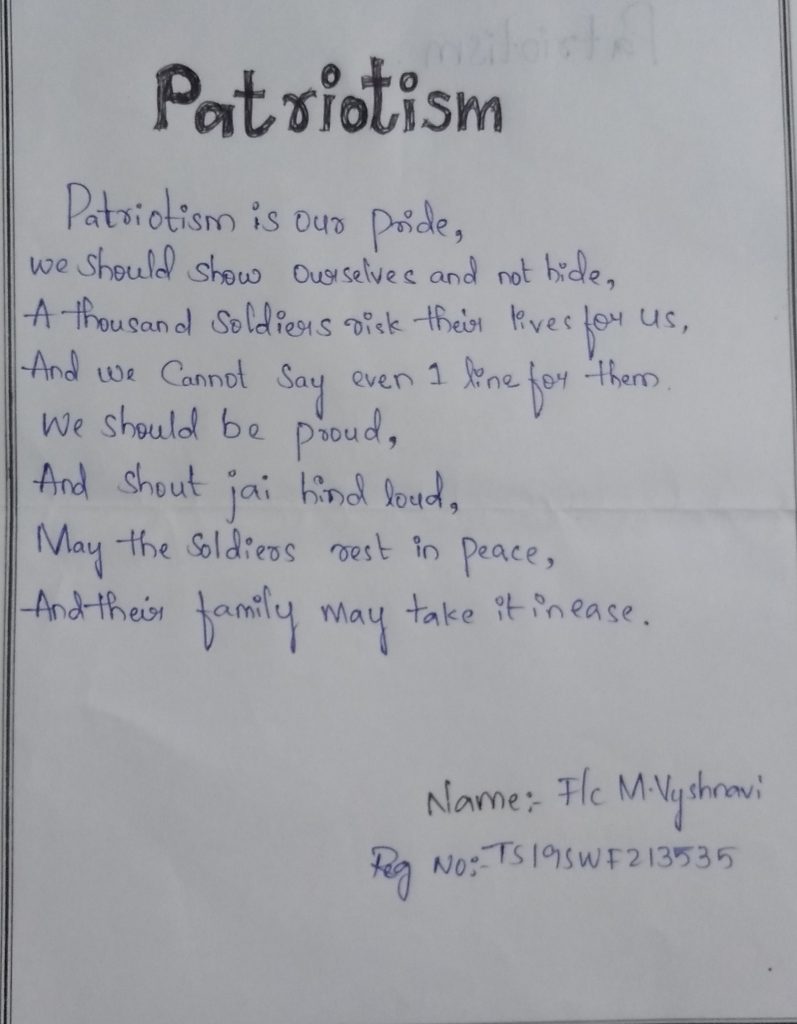 Patriotism
Patriotism is our pride,
we should show ourselves and not hide,
A thousand Soldiers risk their lives for us,
And we Cannot Say even 1 line for them.
We should be proud,
And Shout jai hind loud,
May the Soldiers rest in peace,
And their family may take it in ease.
Name:- F/c M.Vyshnavi
Reg No:- TS19SWF213535